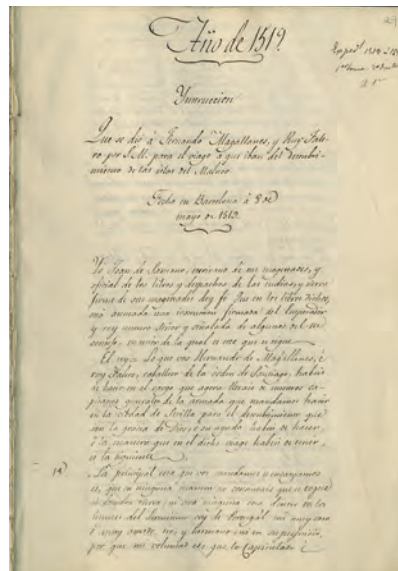 29
Año de 1519.
Ynstruccion
Que se dió à Fernando Magallanes, y Ruy Fale-
ro por S.M. para el viage à que iban del descubri-
miento de las islas del Maluco.
Fecho en Barcelona à 8 de
mayo de 1519.
Yo Juan de Samano, escrivano de sus magestades, y
oficial de los libros y despachos de las indias,
firma de sus magestades doy fe que en los libros dichos,
está asentada una instrucion firmada del Emperador
y rey nuestro señor y señalada de algunos del su
consejo, el tenor de la qual es este que se sigue
El rey = Lo que vos Hernando de Magallanes, é
ruy Falero, caballeros de la orden de Santiago, habeis
de hacer en el cargo que agora llevais de nuestros ca-
pitanes generales de la armada que mandamos hacer
en la cibdad de Sevilla para el descubrimiento que
con la gracia de Dios, é su ayuda habeis de hacer,
é la manera que en el dicho viage habeis de tener,
es la siguiente
1ª La principal cosa que vos mandamos y encargamos
es, que en ninguna manera no consintais que se toque
ni descubra tierra, ni otra ninguna cosa dentro en los
limites del Serenisimo rey de Portugal mi muy caro
é muy amado tio, y hermano
por que mi voluntad es que lo Capitulado é